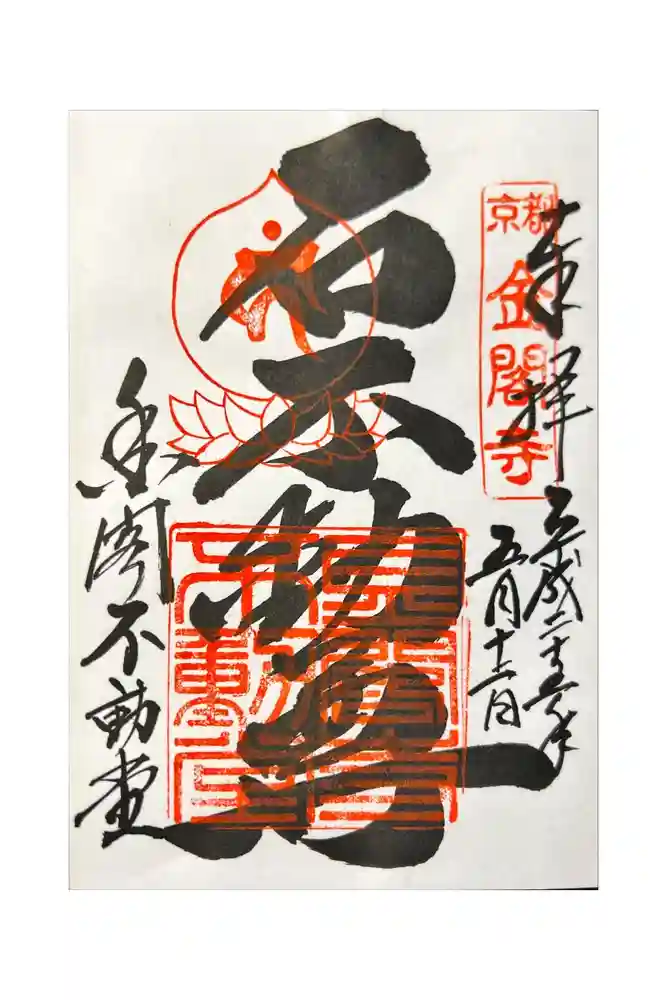 京都
金閣寺
奉拝
平成二十五年
五月十二日
石不動尊
金閣不動堂